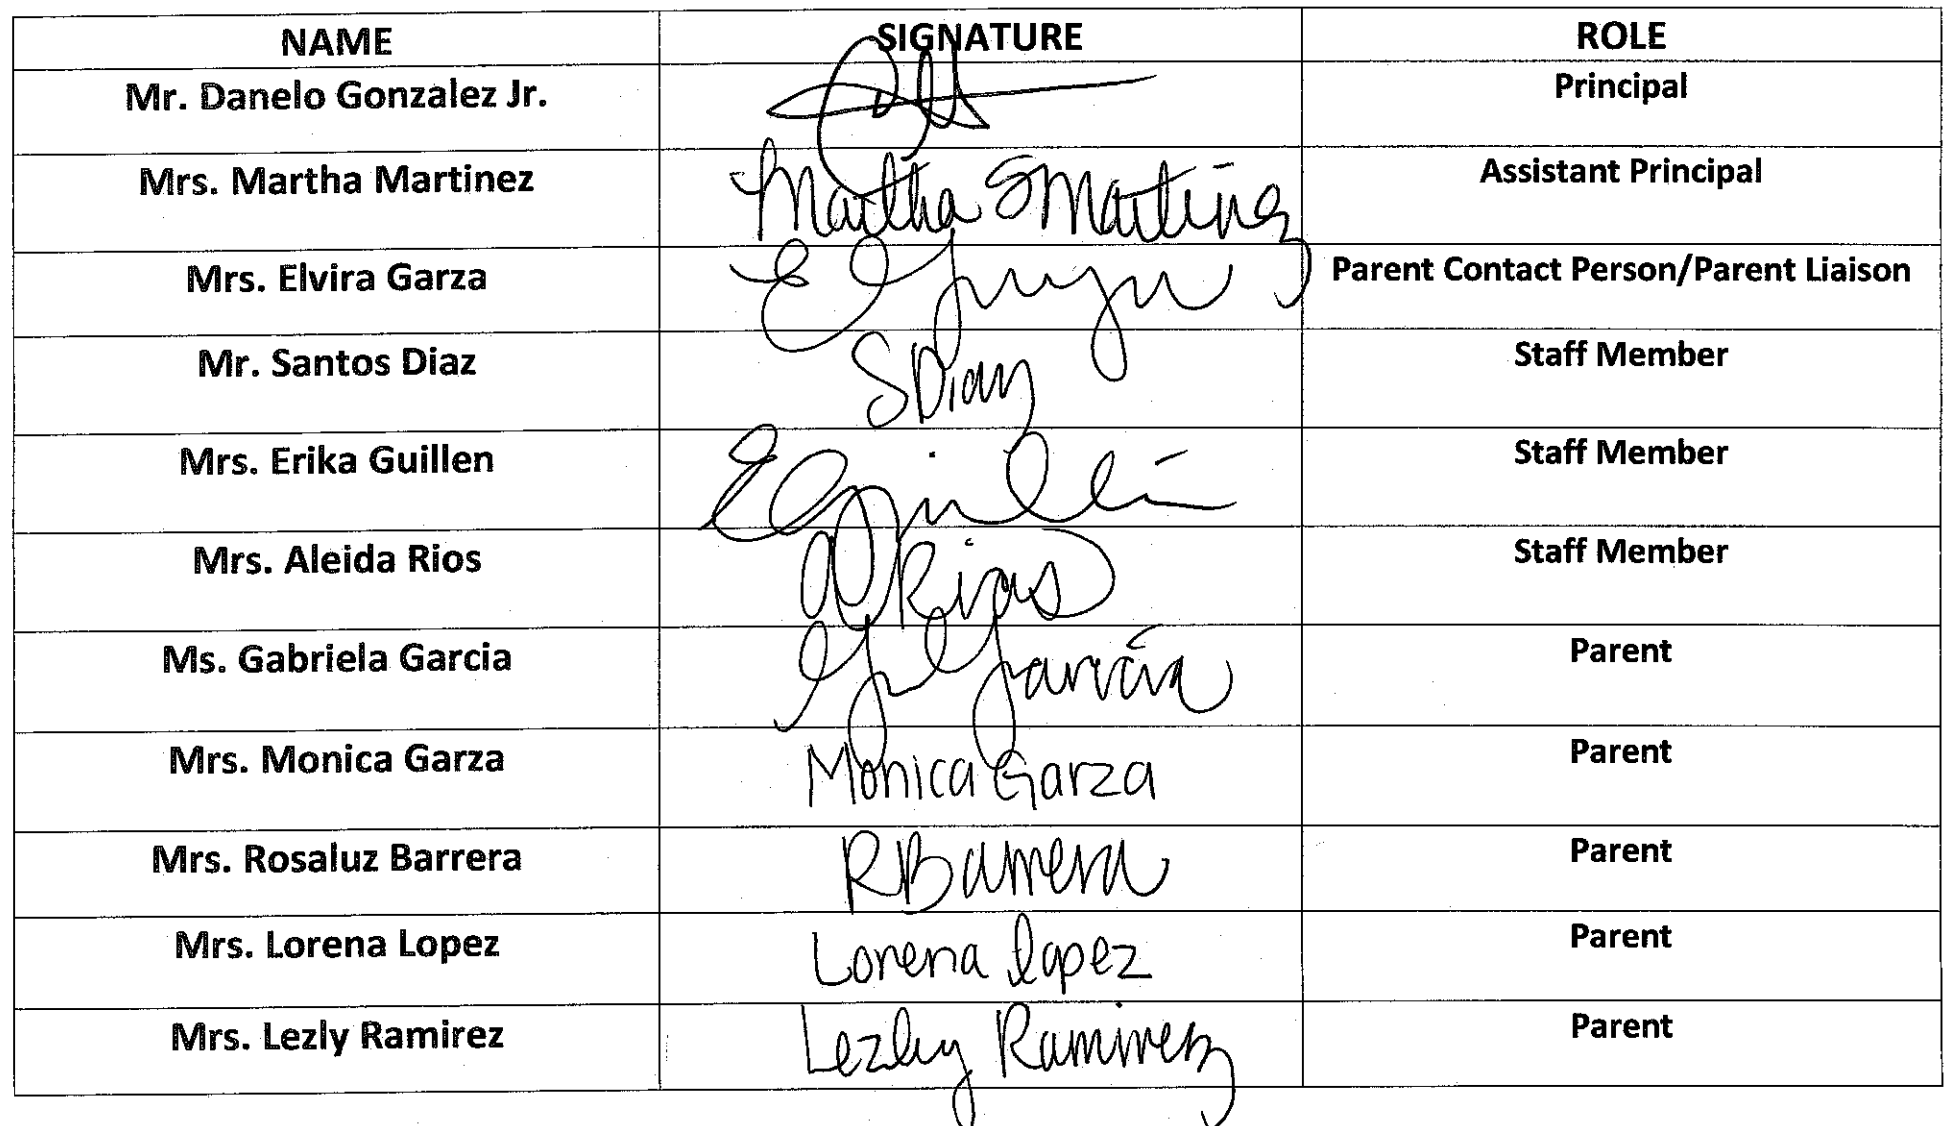 NAME SIGNATURE ROLE
Mr. Danelo Gonzalez Jr. Principal
Mrs. Martha Martinez Martha S Martinez Assistant Principal
Mrs. Elvira Garza Parent Contact Person/Parent Liaison
Mr. Santos Diaz SDiaz Staff Member
Mrs. Erika Guillen EGuillén Staff Member
Mrs. Aleida Rios ARios Staff Member
Ms. Gabriela Garcia García Parent
Mrs. Monica Garza Monica Garza Parent
Mrs. Rosaluz Barrera RBarrera Parent
Mrs. Lorena Lopez Lorena lopez Parent
Mrs. Lezly Ramirez Lezly Ramirez Parent